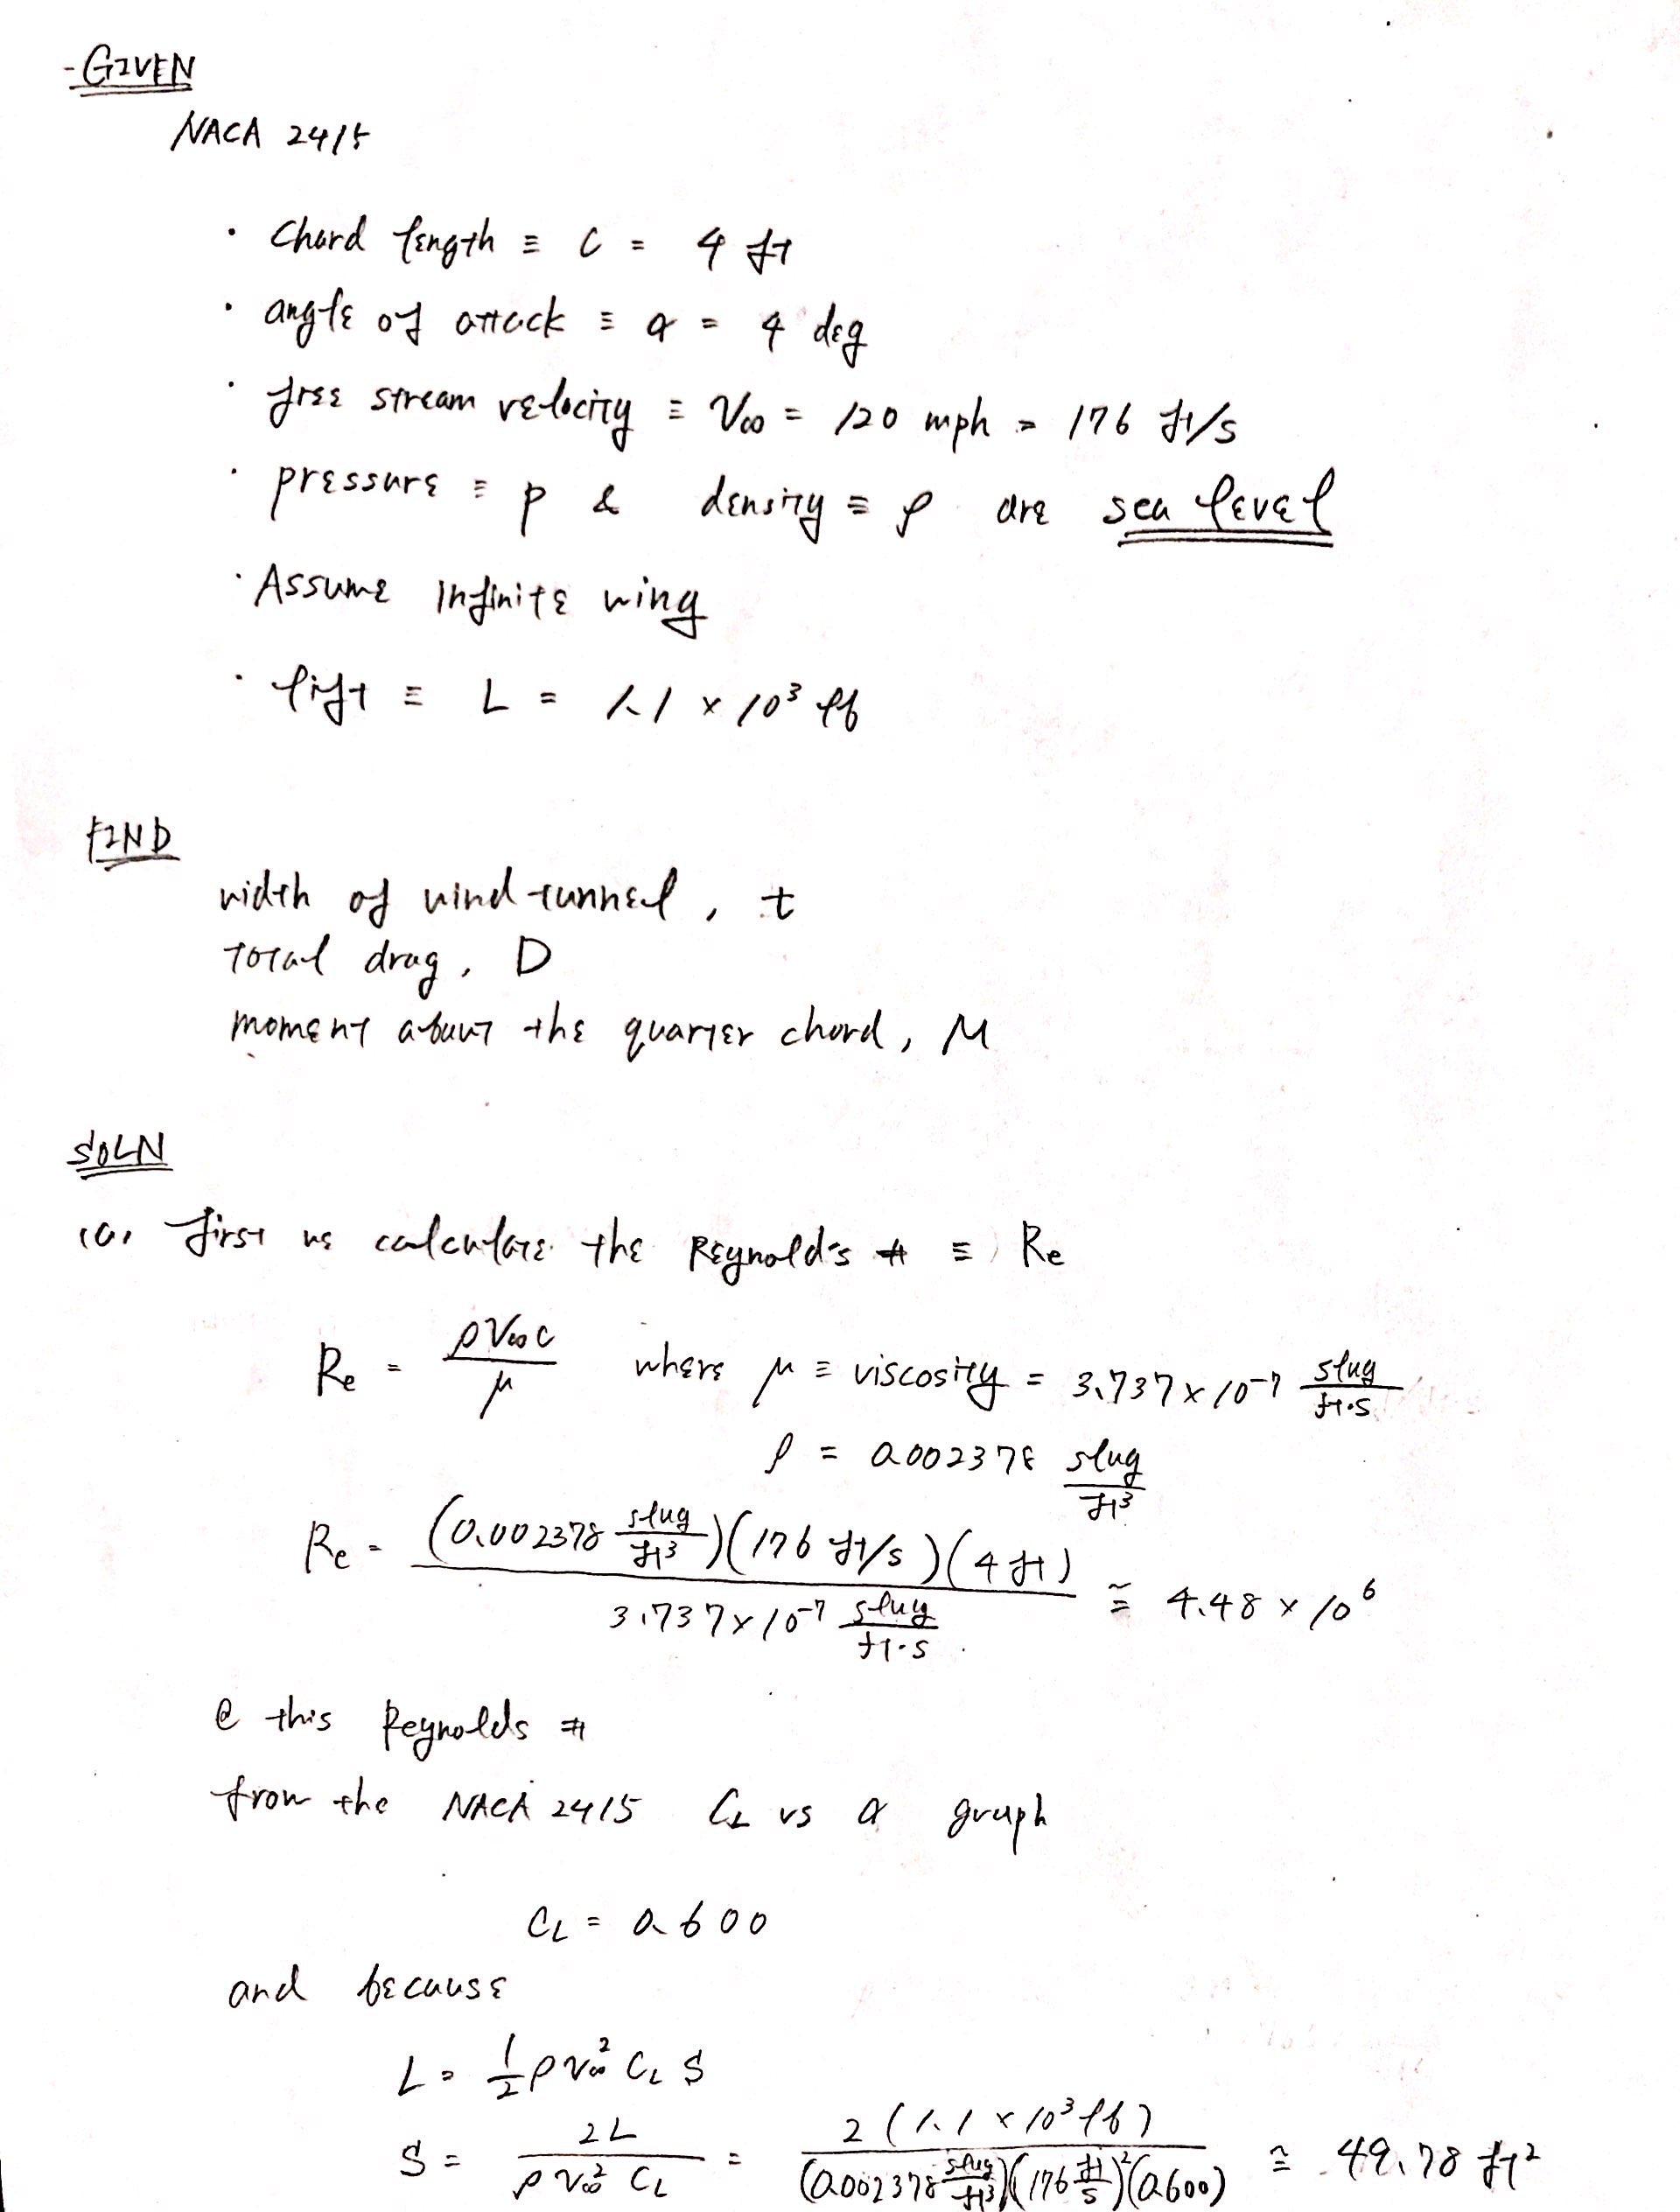 - GIVEN
NACA 2415
· Chord length ≡ C = 4 ft
· angle of attack ≡ α = 4 deg
· free stream velocity ≡ V∞ = 120 mph = 176 ft/s
· pressure ≡ p & density ≡ ρ are sea level
· Assume infinite wing
· lift ≡ L = 1.1 × 10³ lb
FIND
width of wind tunnel, t
total drag, D
moment about the quarter chord, M
SOLN
(a) first we calculate the Reynold's # ≡ Re
Re = ρV∞c / μ where μ ≡ viscosity = 3.737 × 10⁻⁷ slug / ft·s
ρ = 0.002378 slug / ft³
Re = (0.002378 slug/ft³)(176 ft/s)(4 ft) / 3.737 × 10⁻⁷ slug/ft·s ≅ 4.48 × 10⁶
@ this Reynolds #
from the NACA 2415 CL vs α graph
CL = 0.600
and because
L = 1/2 ρ V∞² CL S
S = 2L / ρ V∞² CL = 2 (1.1 × 10³ lb) / (0.002378 slug/ft³)(176 ft/s)²(0.600) ≅ 49.78 ft²